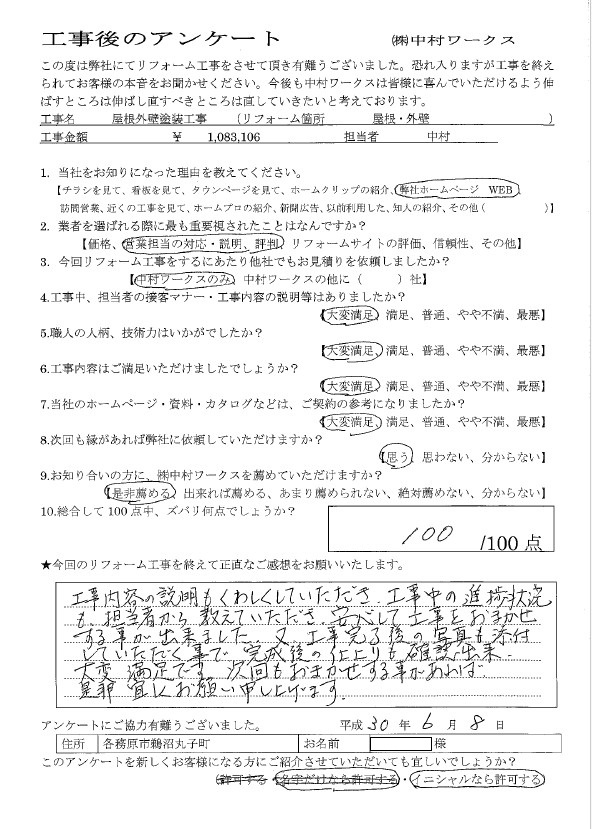 工事後のアンケート ㈱中村ワークス
この度は弊社にてリフォーム工事をさせて頂き有難うございました。恐れ入りますが工事を終え
られてお客様の本音をお聞かせください。今後も中村ワークスは皆様に喜んでいただけるよう伸
ばすところは伸ばし直すべきところは直していきたいと考えております。
工事名 屋根外壁塗装工事 (リフォーム箇所 屋根・外壁 )
工事金額 ¥ 1,083,106 担当者 中村
1. 当社をお知りになった理由を教えてください。
【チラシを見て、看板を見て、タウンページを見て、ホームクリップの紹介、弊社ホームページ WEB、
訪問営業、近くの工事を見て、ホームプロの紹介、新聞広告、以前利用した、知人の紹介、その他( )】
2. 業者を選ばれる際に最も重要視されたことはなんですか?
【価格、営業担当の対応・説明、評判、リフォームサイトの評価、信頼性、その他】
3. 今回リフォーム工事をするにあたり他社でもお見積りを依頼しましたか?
【中村ワークスのみ、中村ワークスの他に( )社】
4.工事中、担当者の接客マナー・工事内容の説明等はありましたか?
【大変満足、満足、普通、やや不満、最悪】
5.職人の人柄、技術力はいかがでしたか?
【大変満足、満足、普通、やや不満、最悪】
6.工事内容はご満足いただけましたでしょうか?
【大変満足、満足、普通、やや不満、最悪】
7.当社のホームページ・資料・カタログなどは、ご契約の参考になりましたか?
【大変満足、満足、普通、やや不満、最悪】
8.次回も縁があれば弊社に依頼していただけますか?
【思う、思わない、分からない】
9.お知り合いの方に、㈱中村ワークスを薦めていただけますか?
【是非薦める、出来れば薦める、あまり薦められない、絶対薦めない、分からない】
10.総合して100点中、ズバリ何点でしょうか? 100 /100点
★今回のリフォーム工事を終えて正直なご感想をお願いいたします。
工事内容の説明もくわしくしていただき、工事中の進捗状況
も、担当者から教えていただき、安心して工事をおまかせ
する事が出来ました。又、工事完了後の写真も添付
していただく事で、完成後の仕上りも確認出来、
大変満足です。次回もおまかせする事があれば、
是非宜しくお願い申し上げます。
アンケートにご協力有難うございました。 平成30年6月8日
住所 各務原市鵜沼丸子町 お名前 様
このアンケートを新しくお客様になる方にご紹介させていただいても宜しいでしょうか?
(許可する・名字だけなら許可する・イニシャルなら許可する)